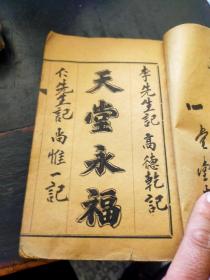 李先生記 高德乾記
天堂永福
仁先生記 尚惟一記